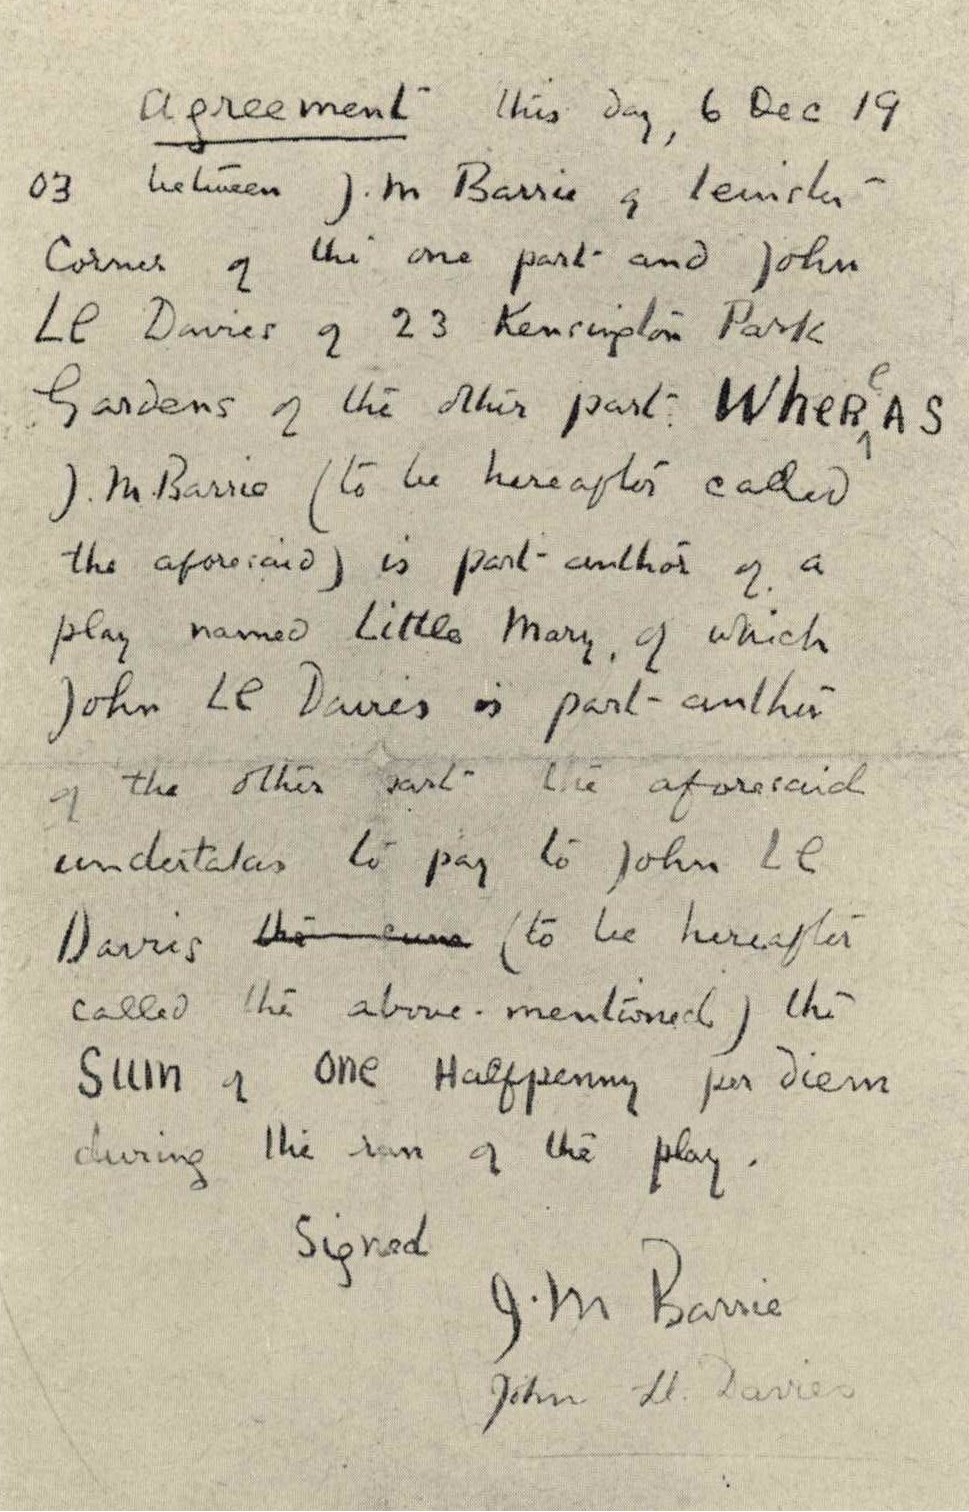 Agreement this day, 6 Dec 19
03 between J.M Barrie of Leinster
Corner of the one part and John
Ll Davies of 23 Kensington Park
Gardens of the other part: WheReAS
J.M.Barrie (to be hereafter called
the aforesaid) is part-author of a
play named Little Mary, of which
John Ll Davies is part-author
of the other part the aforesaid
undertakes to pay to John Ll
Davies the sum (to be hereafter
called the above-mentioned) the
SUM of One Halfpenny per diem
during the run of the play.
Signed
J.M Barrie
John Ll. Davies